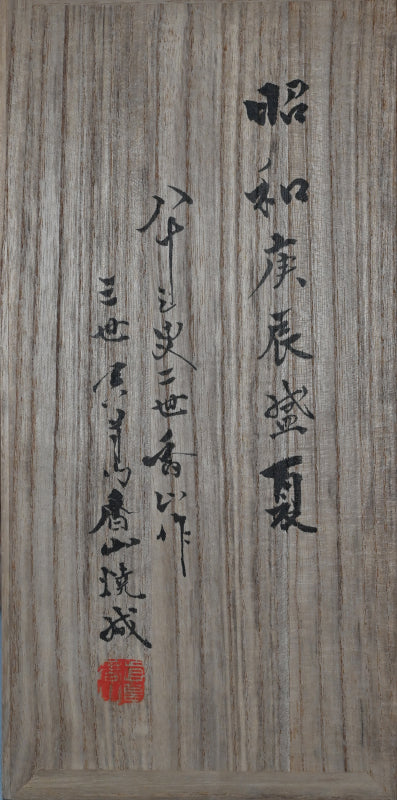 昭和庚辰盛夏
八十叟二世香山作
三世香山燒成